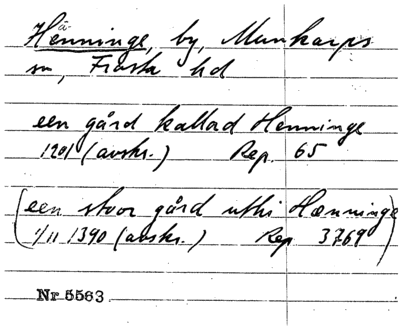 Hänninge, by, Munkarps
sn, Frosta hd
een gård kallad Henninge
1201 (avskr.) Rep. 65
(een stoor gård uthi Hænninge
1/11 1390 (avskr.) Rep 3769)
Nr 5563